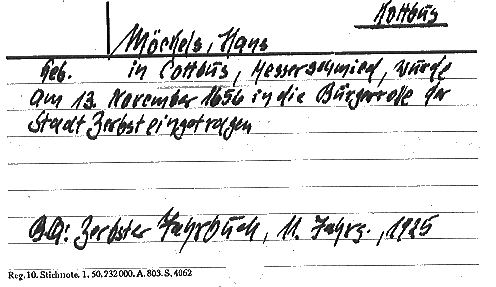 Kottbus
Möckels, Hans
Geb. in Cottbus, Messerschmied, wurde
am 13. November 1656 in die Bürgerrolle der
Stadt Zerbst eingetragen
BQ: Zerbster Jahrbuch, 11. Jahrg., 1925
Reg. 10. Stichnote. 1. 50. 232 000. A. 803. S. 4062